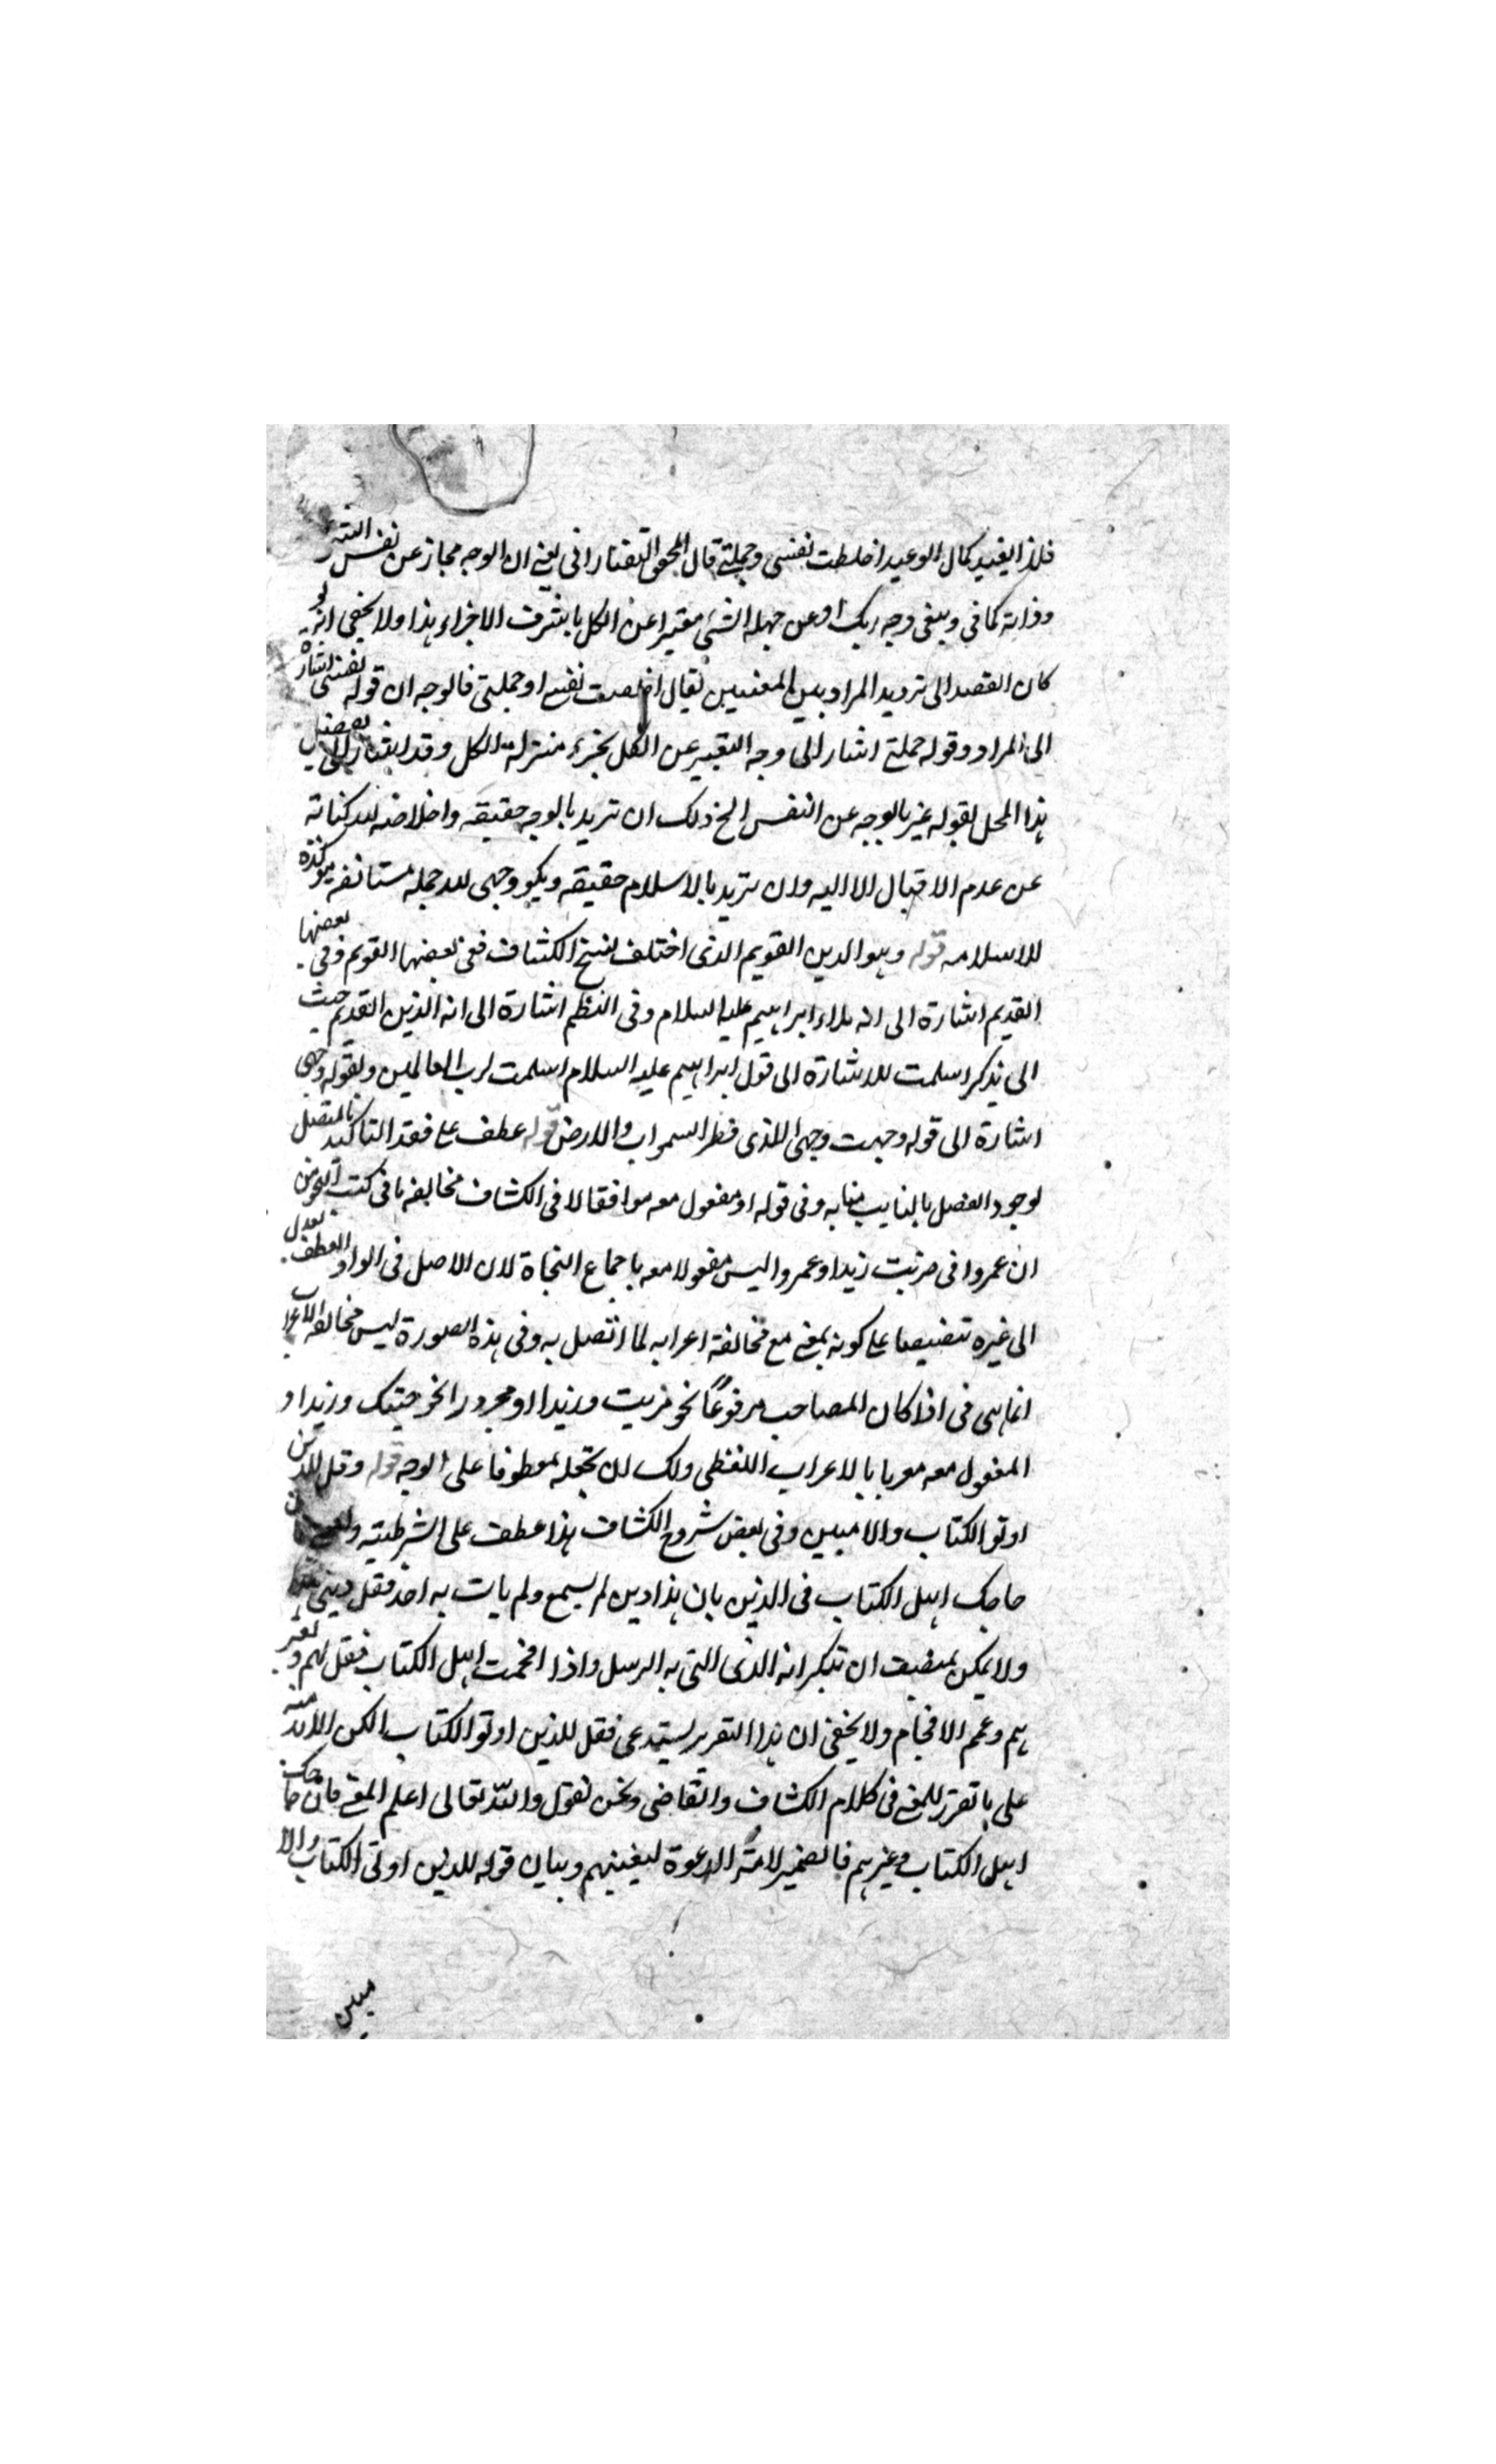 فلذا يفيد كمال الوعيد اخلصت نفسى وجملتى قال المحقق التفتازانى يعنى ان الوجه مجاز عن نفس الشئ
وذاته كما فى ويبقى وجه ربك او عن جملة الشئ تعبيرا عن الكل باشرف الاجزاء هذا ولا يخفى انه لو
كان القصد الى ترديد المراد بين المعنيين لقال اخلصت نفسى او جملتى فالوجه ان قوله نفسى اشارة
الى المراد وقوله جملتى اشار الى وجه التعبير عن الكل بجزء منزلة الكل وقد اشار الى تفصيل
هذا المحل بقوله عبر بالوجه عن النفس الخ ولك ان تريد بالوجه حقيقة واخلاصه لله كناية
عن عدم الاقبال الا اليه وان تريد بالاسلام حقيقة ويكون وجهى لله جملة مستانفة مؤكدة
للاسلام قوله وهو الدين القويم الذى اختلف نسخ الكشاف ففى بعضها القويم وفى بعضها
القديم اشارة الى انه ابراهيم عليه السلام وفى النظم اشارة الى انه الدين القديم حيث
الى بذكر اسلمت للاشارة الى قول ابراهيم عليه السلام اسلمت لرب العالمين وبقوله وجهى
اشارة الى قوله وجهت وجهى للذى فطر السموات والارض قوله عطف على فقد التاكيد بالمتصل
لوجود الفصل بالنايب منابه وفى قوله او مفعول معه موافقا لا فى الكشاف مخالفة ما فى كتب النحو من
ان عمروا فى ضربت زيدا وعمروا ليس مفعولا معه باجماع النحاة لان الاصل فى الواو العطف يعدل
الى غيره تنصيصا على كونه بمعنى مع مخالفة اعرابه لما اتصل به وفى هذه الصورة ليس مخالفة الاعراب
انما هى فى اذا كان المصاحب مرفوعا نحو ضربت وزيدا او مجرورا نحو جئتك وزيدا و
المفعول معه معربا بالاعراب اللفظى ولك ان تجعله معطوفا على الوجه قوله وقل للذين
اوتوا الكتاب والاميين وفى بعض شروح الكشاف هذا عطف على الشرطية
حاجك اهل الكتاب فى الدين بان هذا دين لم يسمع ولم يات به احد فقل دينى
ولا يمكن لمنصف ان ينكر انه الذى اتى به الرسل واذا افحمت اهل الكتاب فقل لهم ولغير
هم وعمم الافحام ولا يخفى ان هذا التقرير يستدعى فقل للذين اوتوا الكتاب لكن لابد منه
على ما تقرر للمعنى فى كلام الكشاف والقاضى ونحن نقول والله تعالى اعلم المعنى فان حاجك
اهل الكتاب وغيرهم فالضمير لامة الدعوة ليغنيهم وبيان قوله للذين اوتى الكتاب والا
ميين